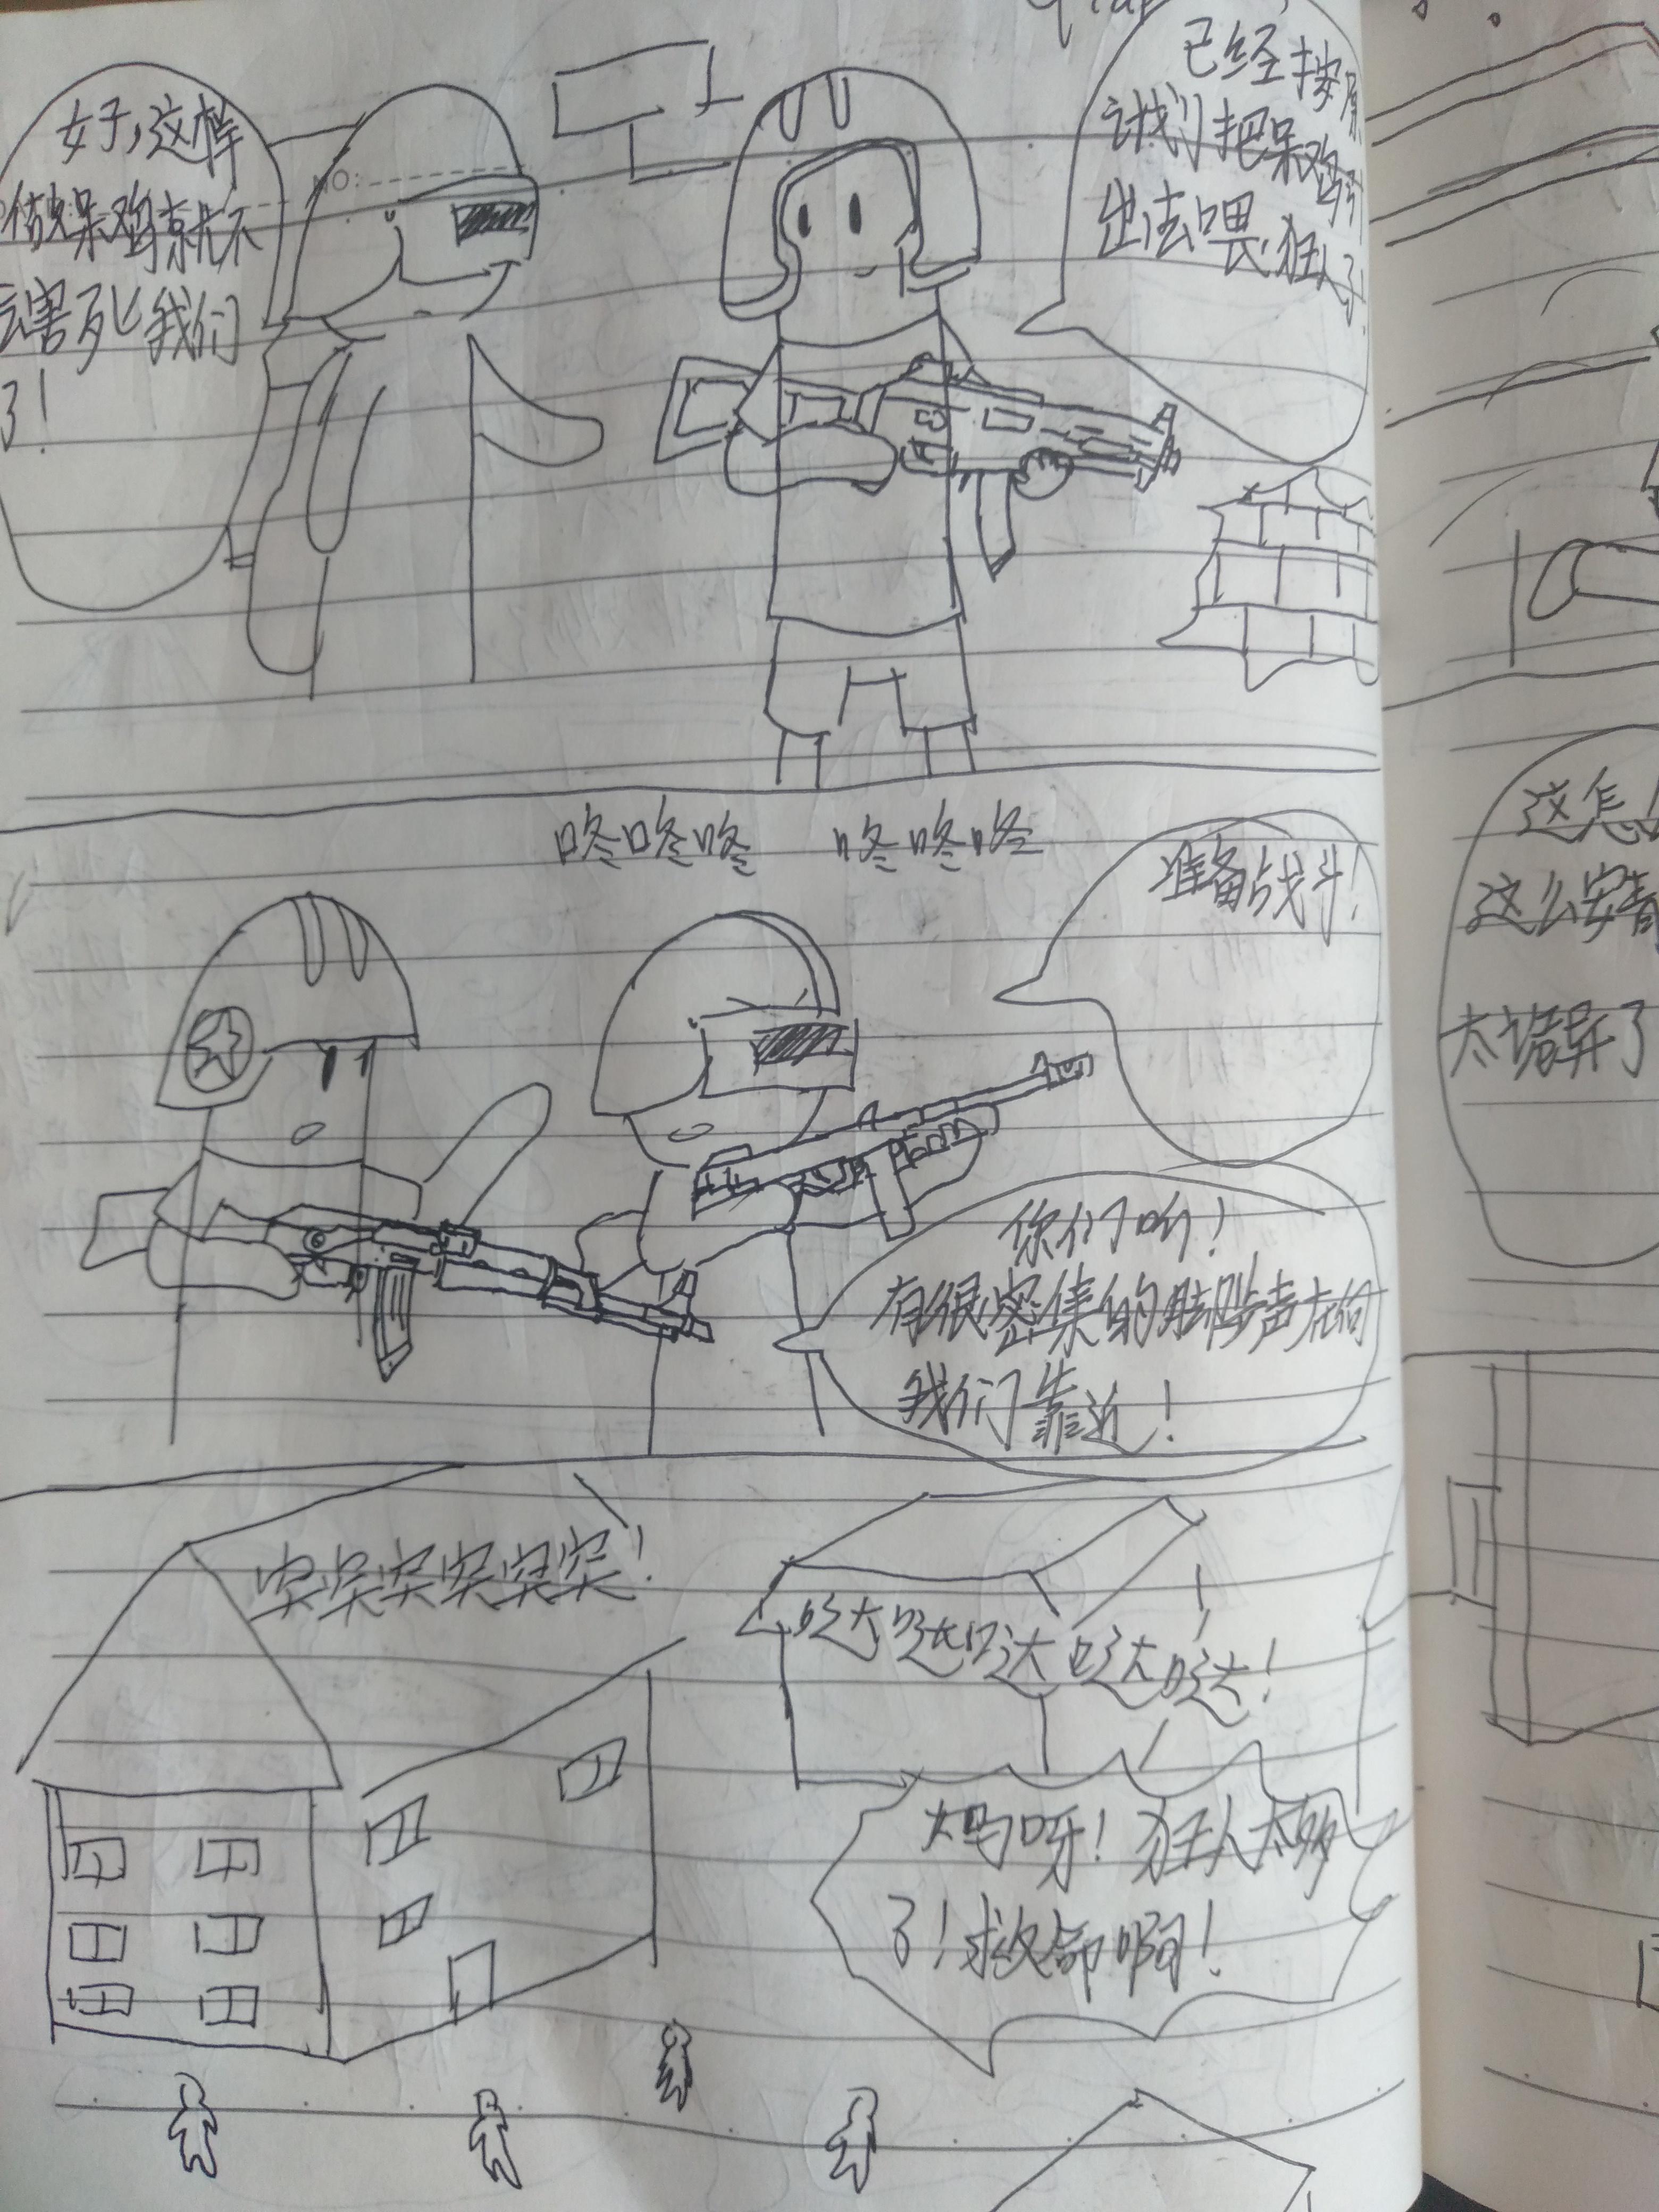 已经按原
计划把呆鸡引
出去喂狂人了!
好,这样
傻呆鸡就不
会害死我们
了!
NO:
咚咚咚 咚咚咚
准备战斗!
你们听!
有很密集的脚步声在向
我们靠近!
突突突突突突!
哒哒哒哒哒!
大妈呀!狂人太多
了!救命啊!
这怎
这么安
太诡异了